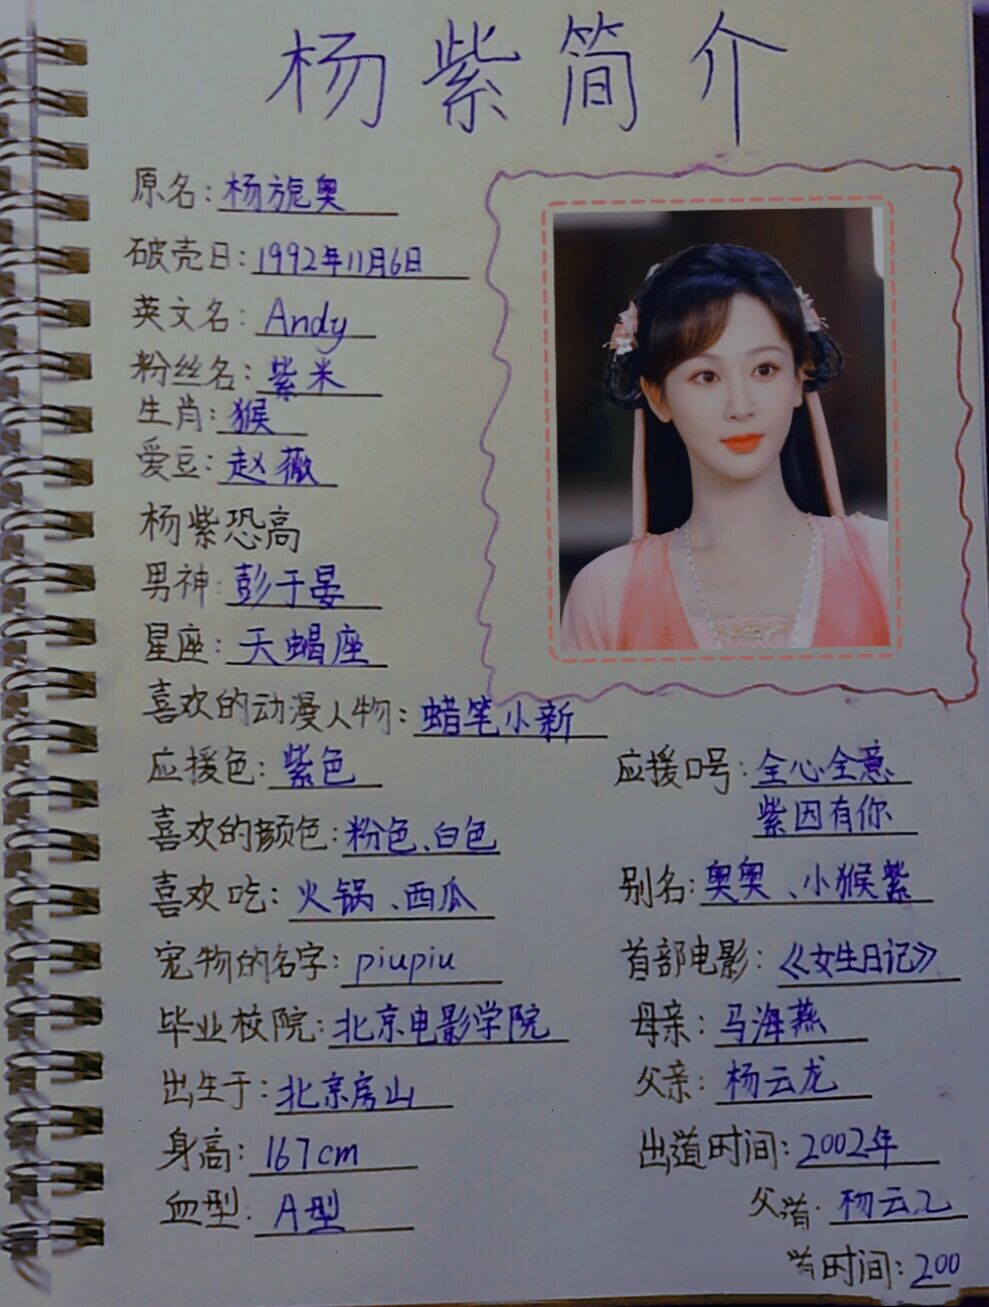 杨紫简介
原名：杨旎奥
破壳日：1992年11月6日
英文名：Andy
粉丝名：紫米
生肖：猴
爱豆：赵薇
杨紫恐高
男神：彭于晏
星座：天蝎座
喜欢的动漫人物：蜡笔小新
应援色：紫色
应援口号：全心全意
紫因有你
喜欢的颜色：粉色、白色
喜欢吃：火锅、西瓜
别名：奥奥、小猴紫
宠物的名字：piupiu
首部电影：《女生日记》
毕业校院：北京电影学院
母亲：马海燕
出生于：北京房山
父亲：杨云龙
身高：167cm
出道时间：2002年
血型：A型
父 杨云
时间：200